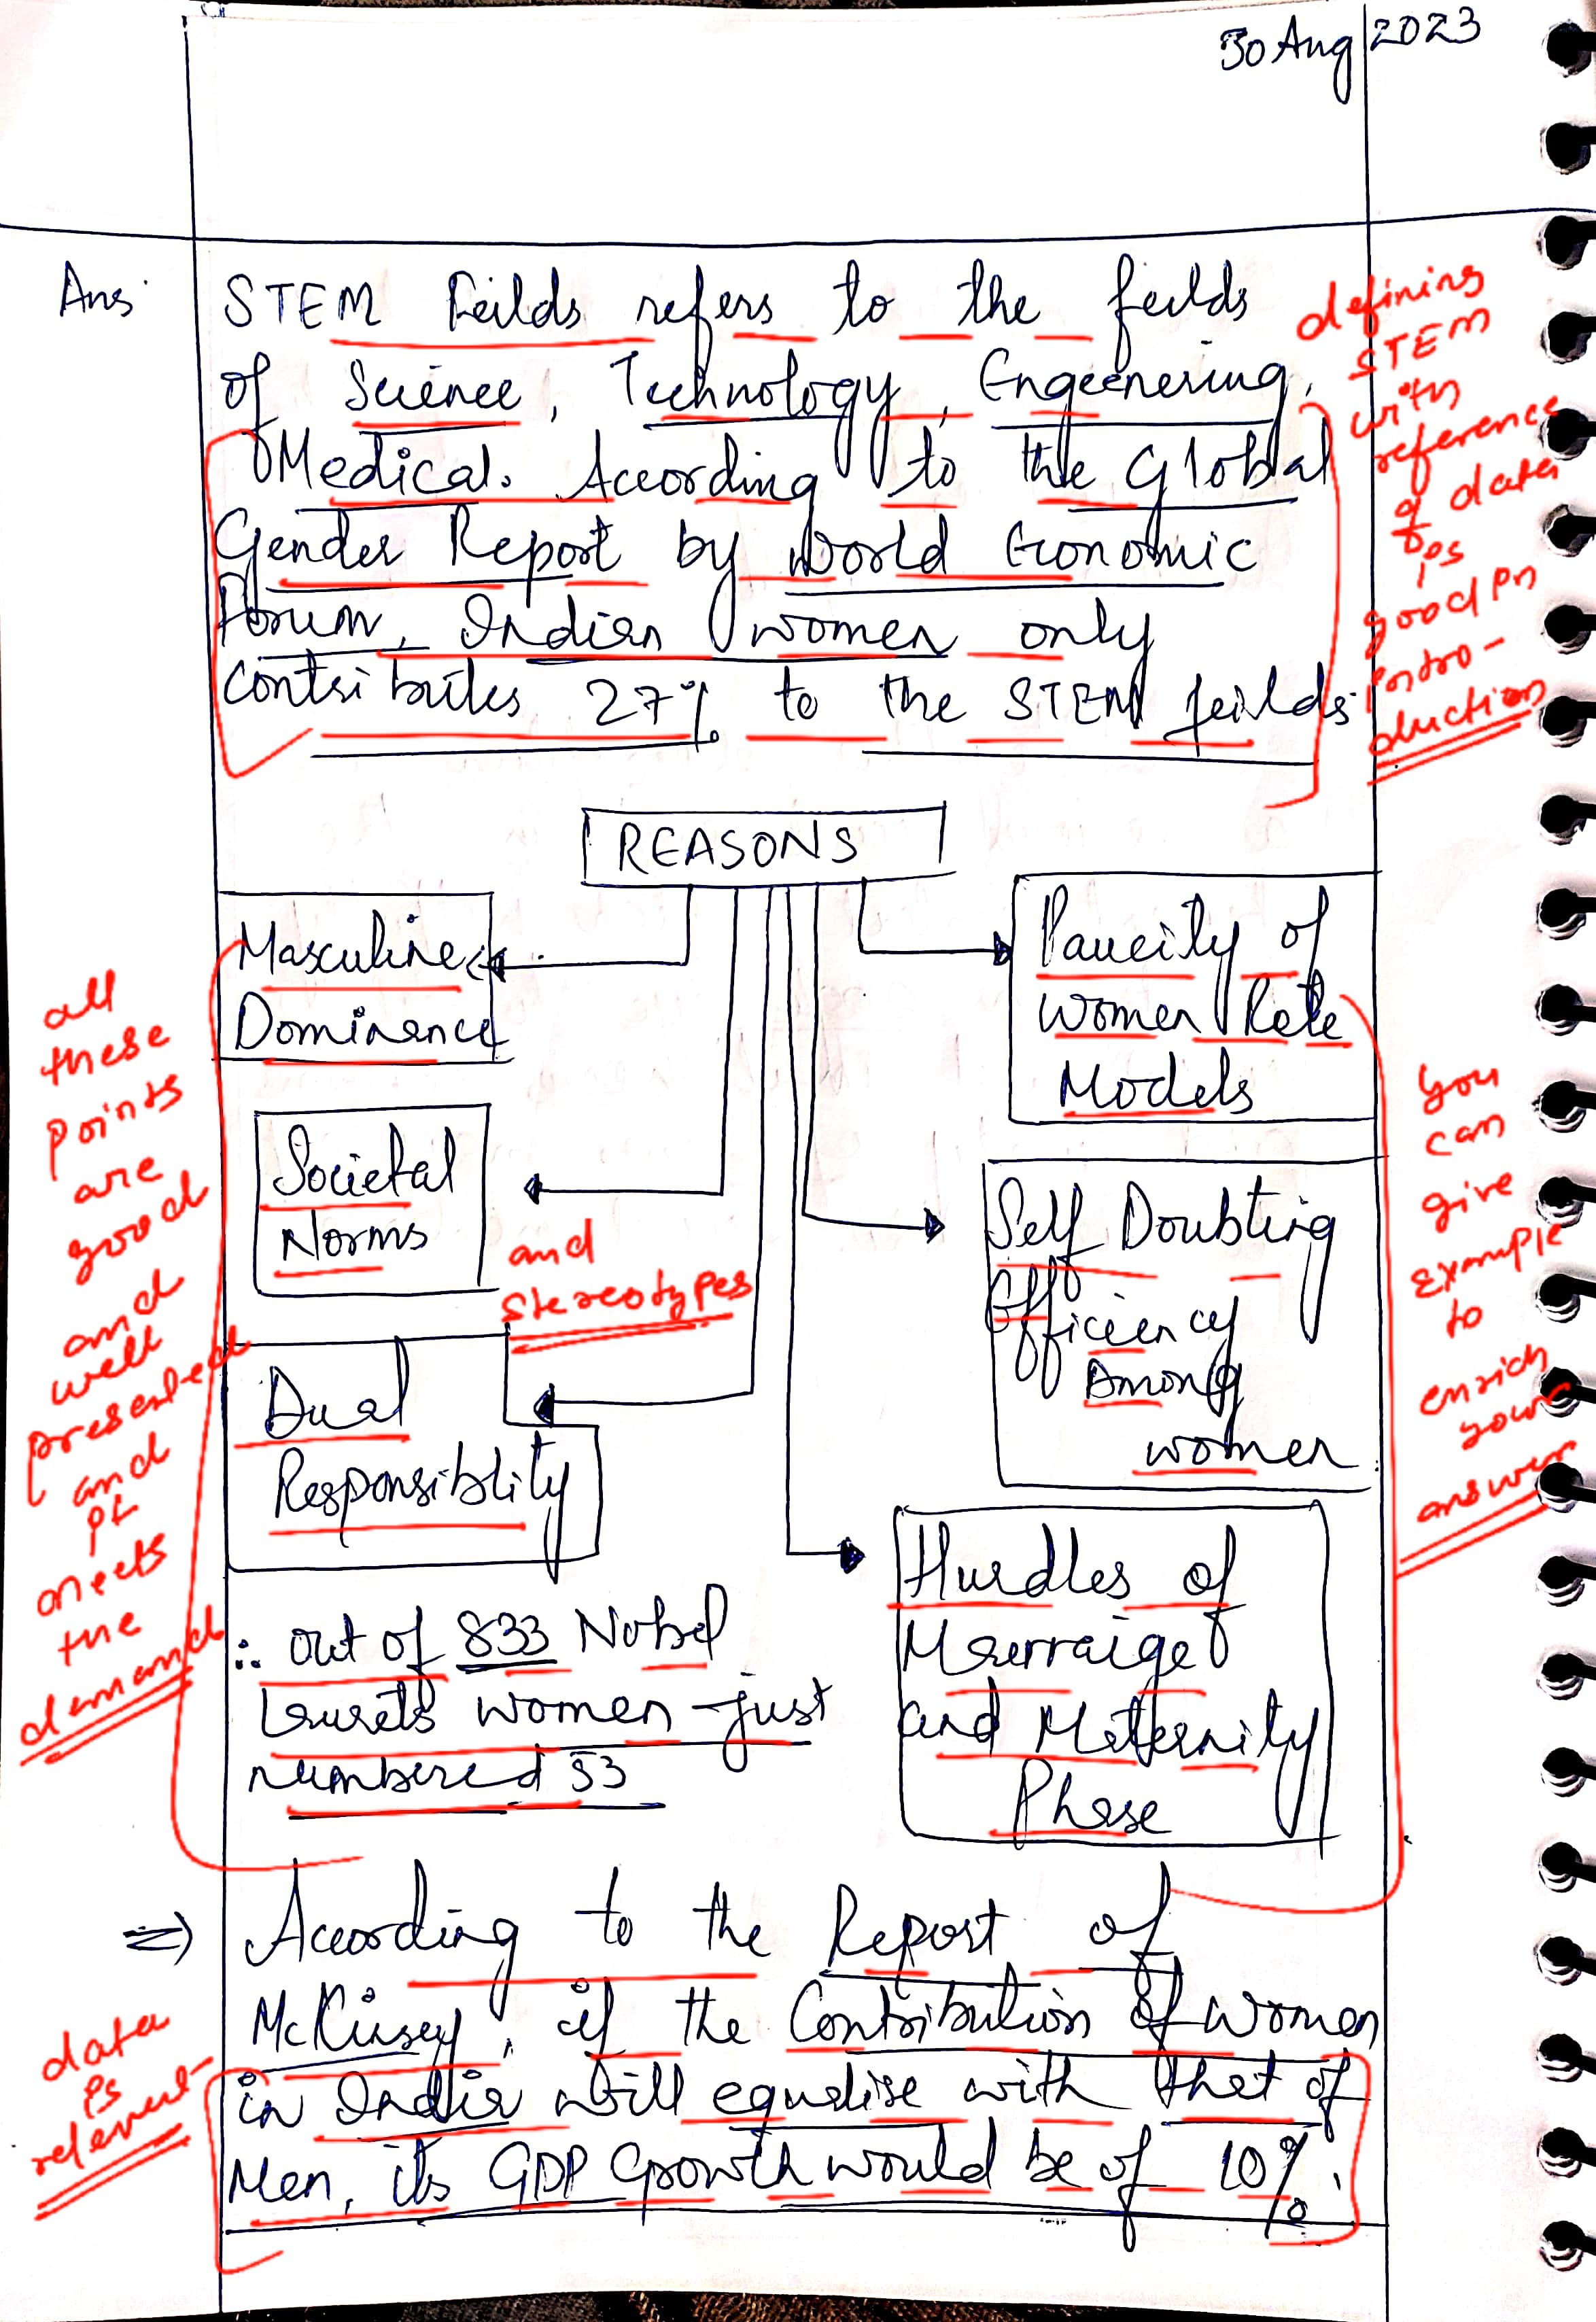 30 Aug 2023
Ans.
STEM Feilds refers to the feilds
of Science, Technology, Engeenering,
Medical. According to the Global
Gender Report by World Economic
Forum, Indian women only
contributes 27% to the STEM feilds.
defining
STEM
with
reference
of data
is
good in
intro-
duction
REASONS
Masculine
Dominance
Paucity of
Women Role
Models
Societal
Norms
and
stereotypes
Self Doubting
Efficiency
Among
women
Dual
Responsiblity
Hurdles of
Marraige
and Maternity
Phase
∴ out of 833 Nobel
Laurets women just
numbered 53
all
these
points
are
good
and
well
presented
and
it
meets
the
demand
You
can
give
example
to
enrich
your
answer
⇒ According to the Report of
McKinsey, if the Contribution of women
in India will equalise with that of
Men, its GDP Growth would be of 10%.
data
is
relevent